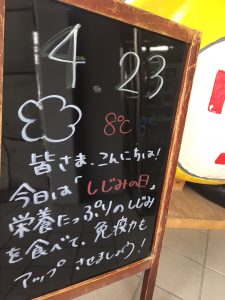 4. 23
8℃
皆さま、こんにちは!
今日は「しじみの日」
栄養たっぷりのしじみ
を食べて、免疫力も
アップさせましょう!